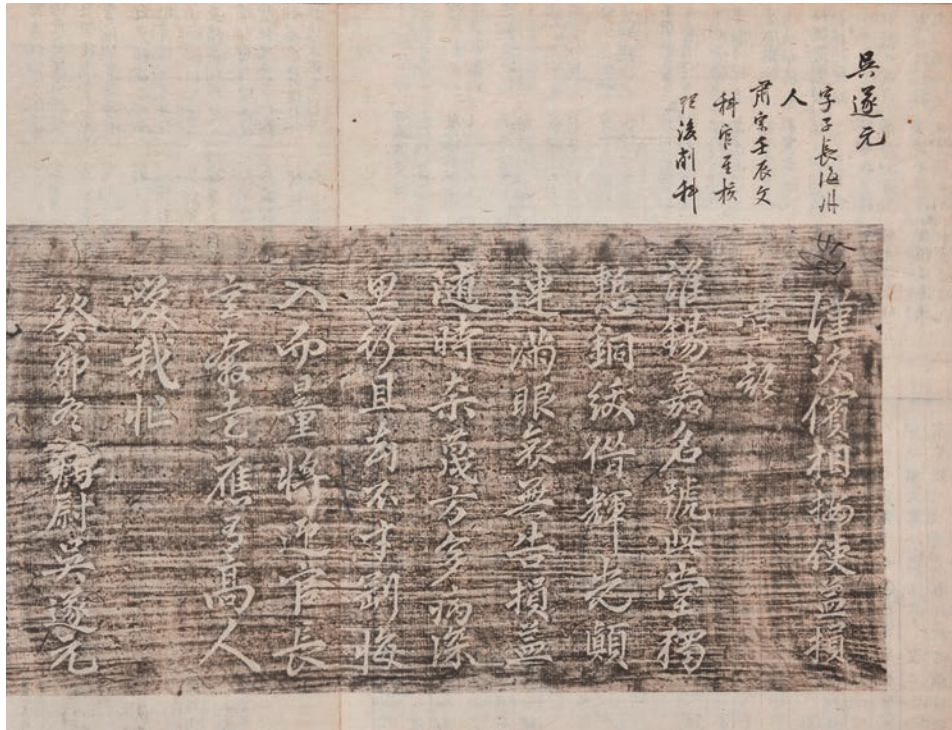 吳遂元
字子長海州
人
肅宗壬辰文
科官至校
理後削科
謹次儐相按使益損
堂韻
誰錫嘉名號此堂獨
慙銅紱借輝光顛
連滿眼哀無告損益
隨時柰蔑方多病深
思移且去不才剛悔
入而量將迎官長
空奔走應有高人
笑我忙
癸卯冬 尉吳遂元